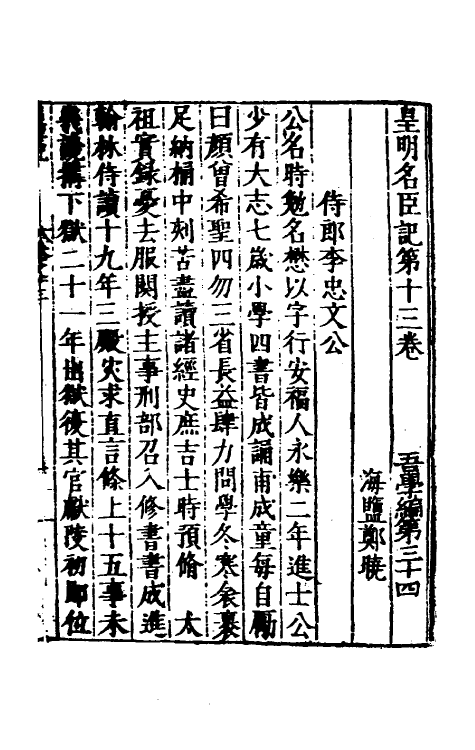 皇明名臣記第十三卷 吾學編第三十四
海鹽鄭曉
侍郎李忠文公
公名時勉名懋以字行安福人永樂二年進士公
少有大志七歲小學四書皆成誦甫成童每自勵
曰顏曾希聖四勿三省長益肆力問學冬寒衾裹
足納桶中刻苦盡讀諸經史庶吉士時預脩 太
祖實錄憂去服闋授主事刑部召入修書書成進
翰林侍讀十九年三殿灾求直言條上十五事未
下獄二十一年出獄復其官獻陵初即位